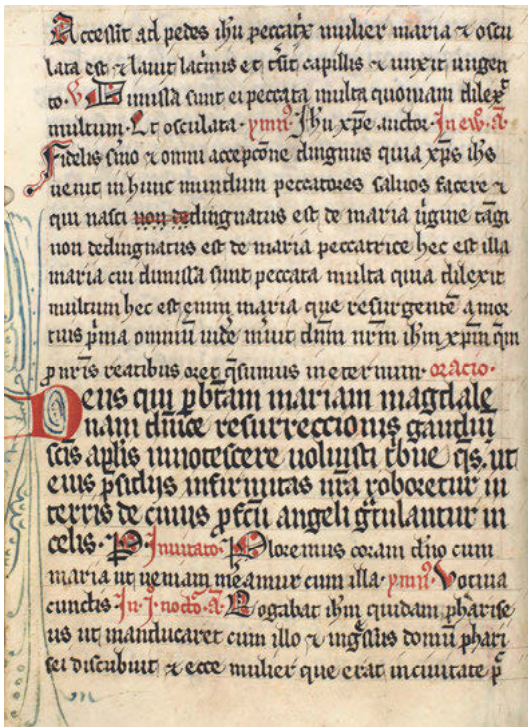 Accessit ad pedes ihu peccatx mulier maria ⁊ oscu
lata est ⁊ lauit lacimis et tsit capillis ⁊ unxit ungen
to. V Dimissa sunt ei peccata multa quoniam dilex
multum. Et osculata. ymn9. Ihu xpe auctor. In ew. a.
Fidelis smo ⁊ omni accepcõne dingnus quia xps ihs
uenit in hunc mundum peccatores saluos facere ⁊
qui nasci non dedingnatus est de maria ugine tãgi
non dedingnatus est de maria peccatrice hec est illa
maria cui dimissa sunt peccata multa quia dilexit
multum hec est enim maria que resurgentẽ a mor
tuis pma omniũ uidẽ muit dnm nrm ihm xpm qm
ꝓ nris reatibus oret qsumus in eternum. oracio.
Deus qui pbtam mariam magdale
nam dnice resurreccionis gaudiũ
scis aplis innotescere uoluisti tbue qs. ut
eius psidijs infirmitas nra roboretur in
terris de cuius ꝓfcũ angeli gtulantur in
celis. P. Inuitato. Ploremus coram dno cum
maria ut ueniam meamur cum illa. ymn9. Votiua
cunctis In. j. nocto. a. Rogabat ihm quidam pharise
us ut manducaret cum illo ⁊ ingssus domũ phari
sei discubuit ⁊ ecce mulier que erat in ciuitate pc